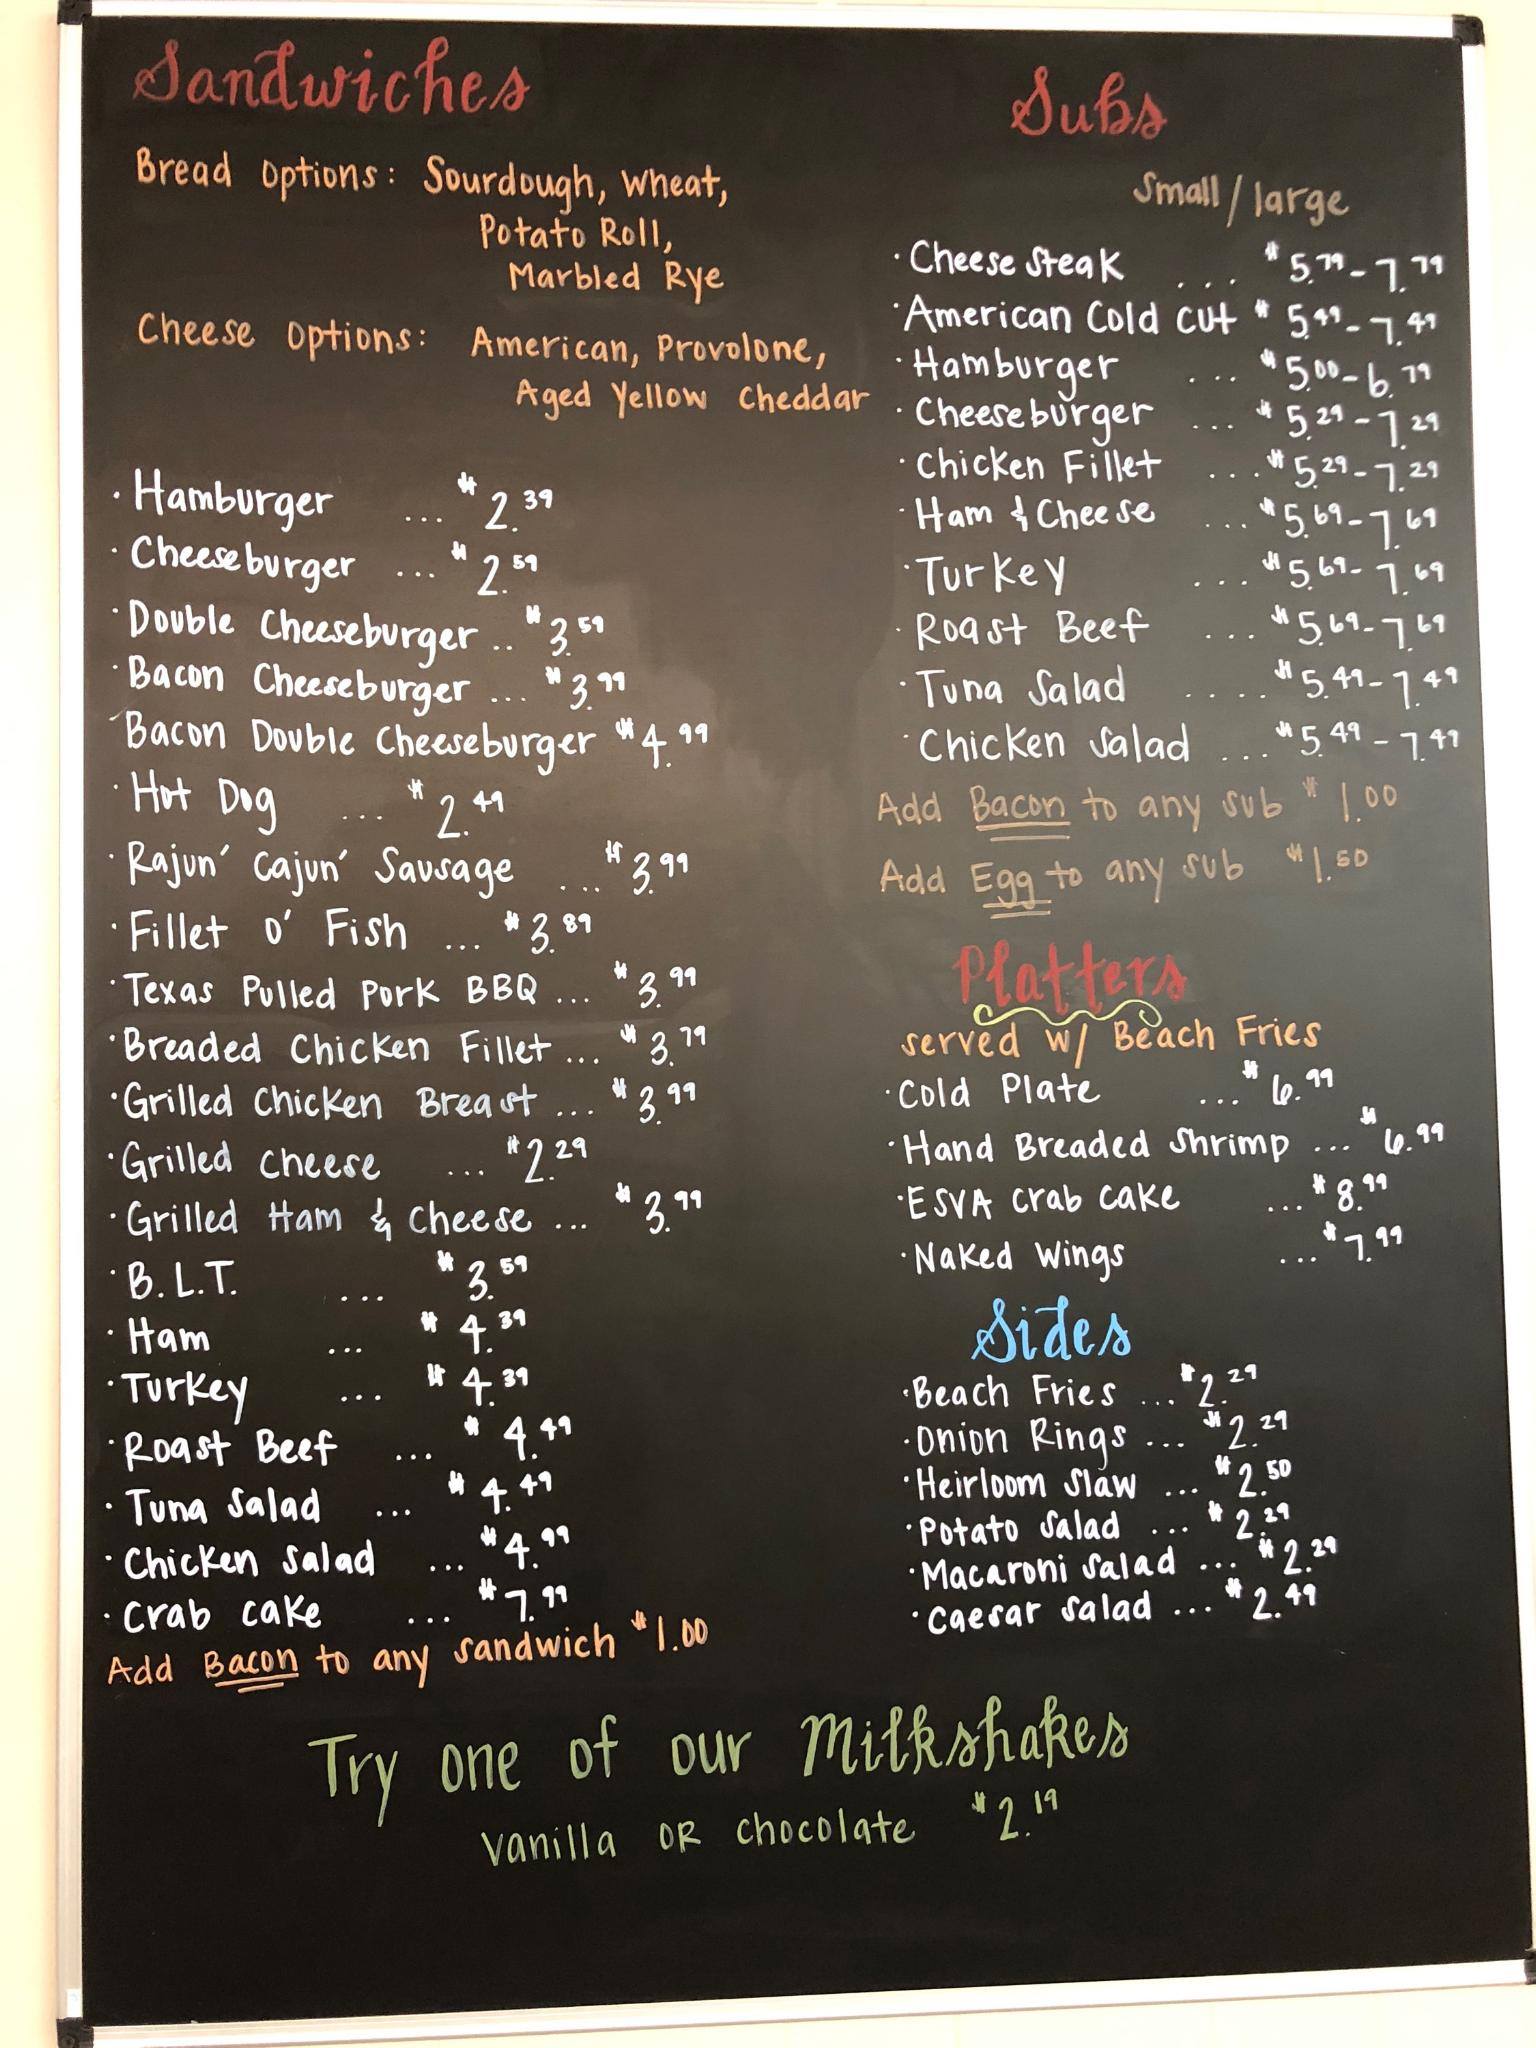 Sandwiches
Bread Options: Sourdough, Wheat,
Potato Roll,
Marbled Rye
Cheese Options: American, Provolone,
Aged Yellow Cheddar
· Hamburger ... $2.39
· Cheeseburger ... $2.59
· Double Cheeseburger .. $3.59
· Bacon Cheeseburger ... $3.99
· Bacon Double Cheeseburger $4.99
· Hot Dog ... $2.49
· Rajun' Cajun' Sausage ... $3.99
· Fillet O' Fish ... $3.89
· Texas Pulled Pork BBQ ... $3.99
· Breaded Chicken Fillet ... $3.79
· Grilled Chicken Breast ... $3.99
· Grilled Cheese ... $2.29
· Grilled Ham & Cheese ... $3.99
· B.L.T. ... $3.59
· Ham ... $4.39
· Turkey ... $4.39
· Roast Beef ... $4.49
· Tuna Salad ... $4.49
· Chicken Salad ... $4.99
· Crab Cake ... $7.99
Add Bacon to any sandwich $1.00
Subs
Small / large
· Cheese Steak ... $5.79 - 7.79
· American Cold Cut $5.49 - 7.49
· Hamburger ... $5.00 - 6.79
· Cheeseburger ... $5.29 - 7.29
· Chicken Fillet ... $5.29 - 7.29
· Ham & Cheese ... $5.69 - 7.69
· Turkey ... $5.69 - 7.69
· Roast Beef ... $5.69 - 7.69
· Tuna Salad .... $5.49 - 7.49
· Chicken Salad ... $5.49 - 7.49
Add Bacon to any sub $1.00
Add Egg to any sub $1.50
Platters
served w/ Beach Fries
· Cold Plate ... $6.99
· Hand Breaded Shrimp ... $6.99
· ESVA Crab Cake ... $8.99
· Naked Wings ... $7.99
Sides
· Beach Fries ... $2.29
· Onion Rings ... $2.29
· Heirloom Slaw ... $2.50
· Potato Salad ... $2.29
· Macaroni Salad ... $2.29
· Caesar Salad ... $2.49
Try one of our Milkshakes
Vanilla OR Chocolate $2.19